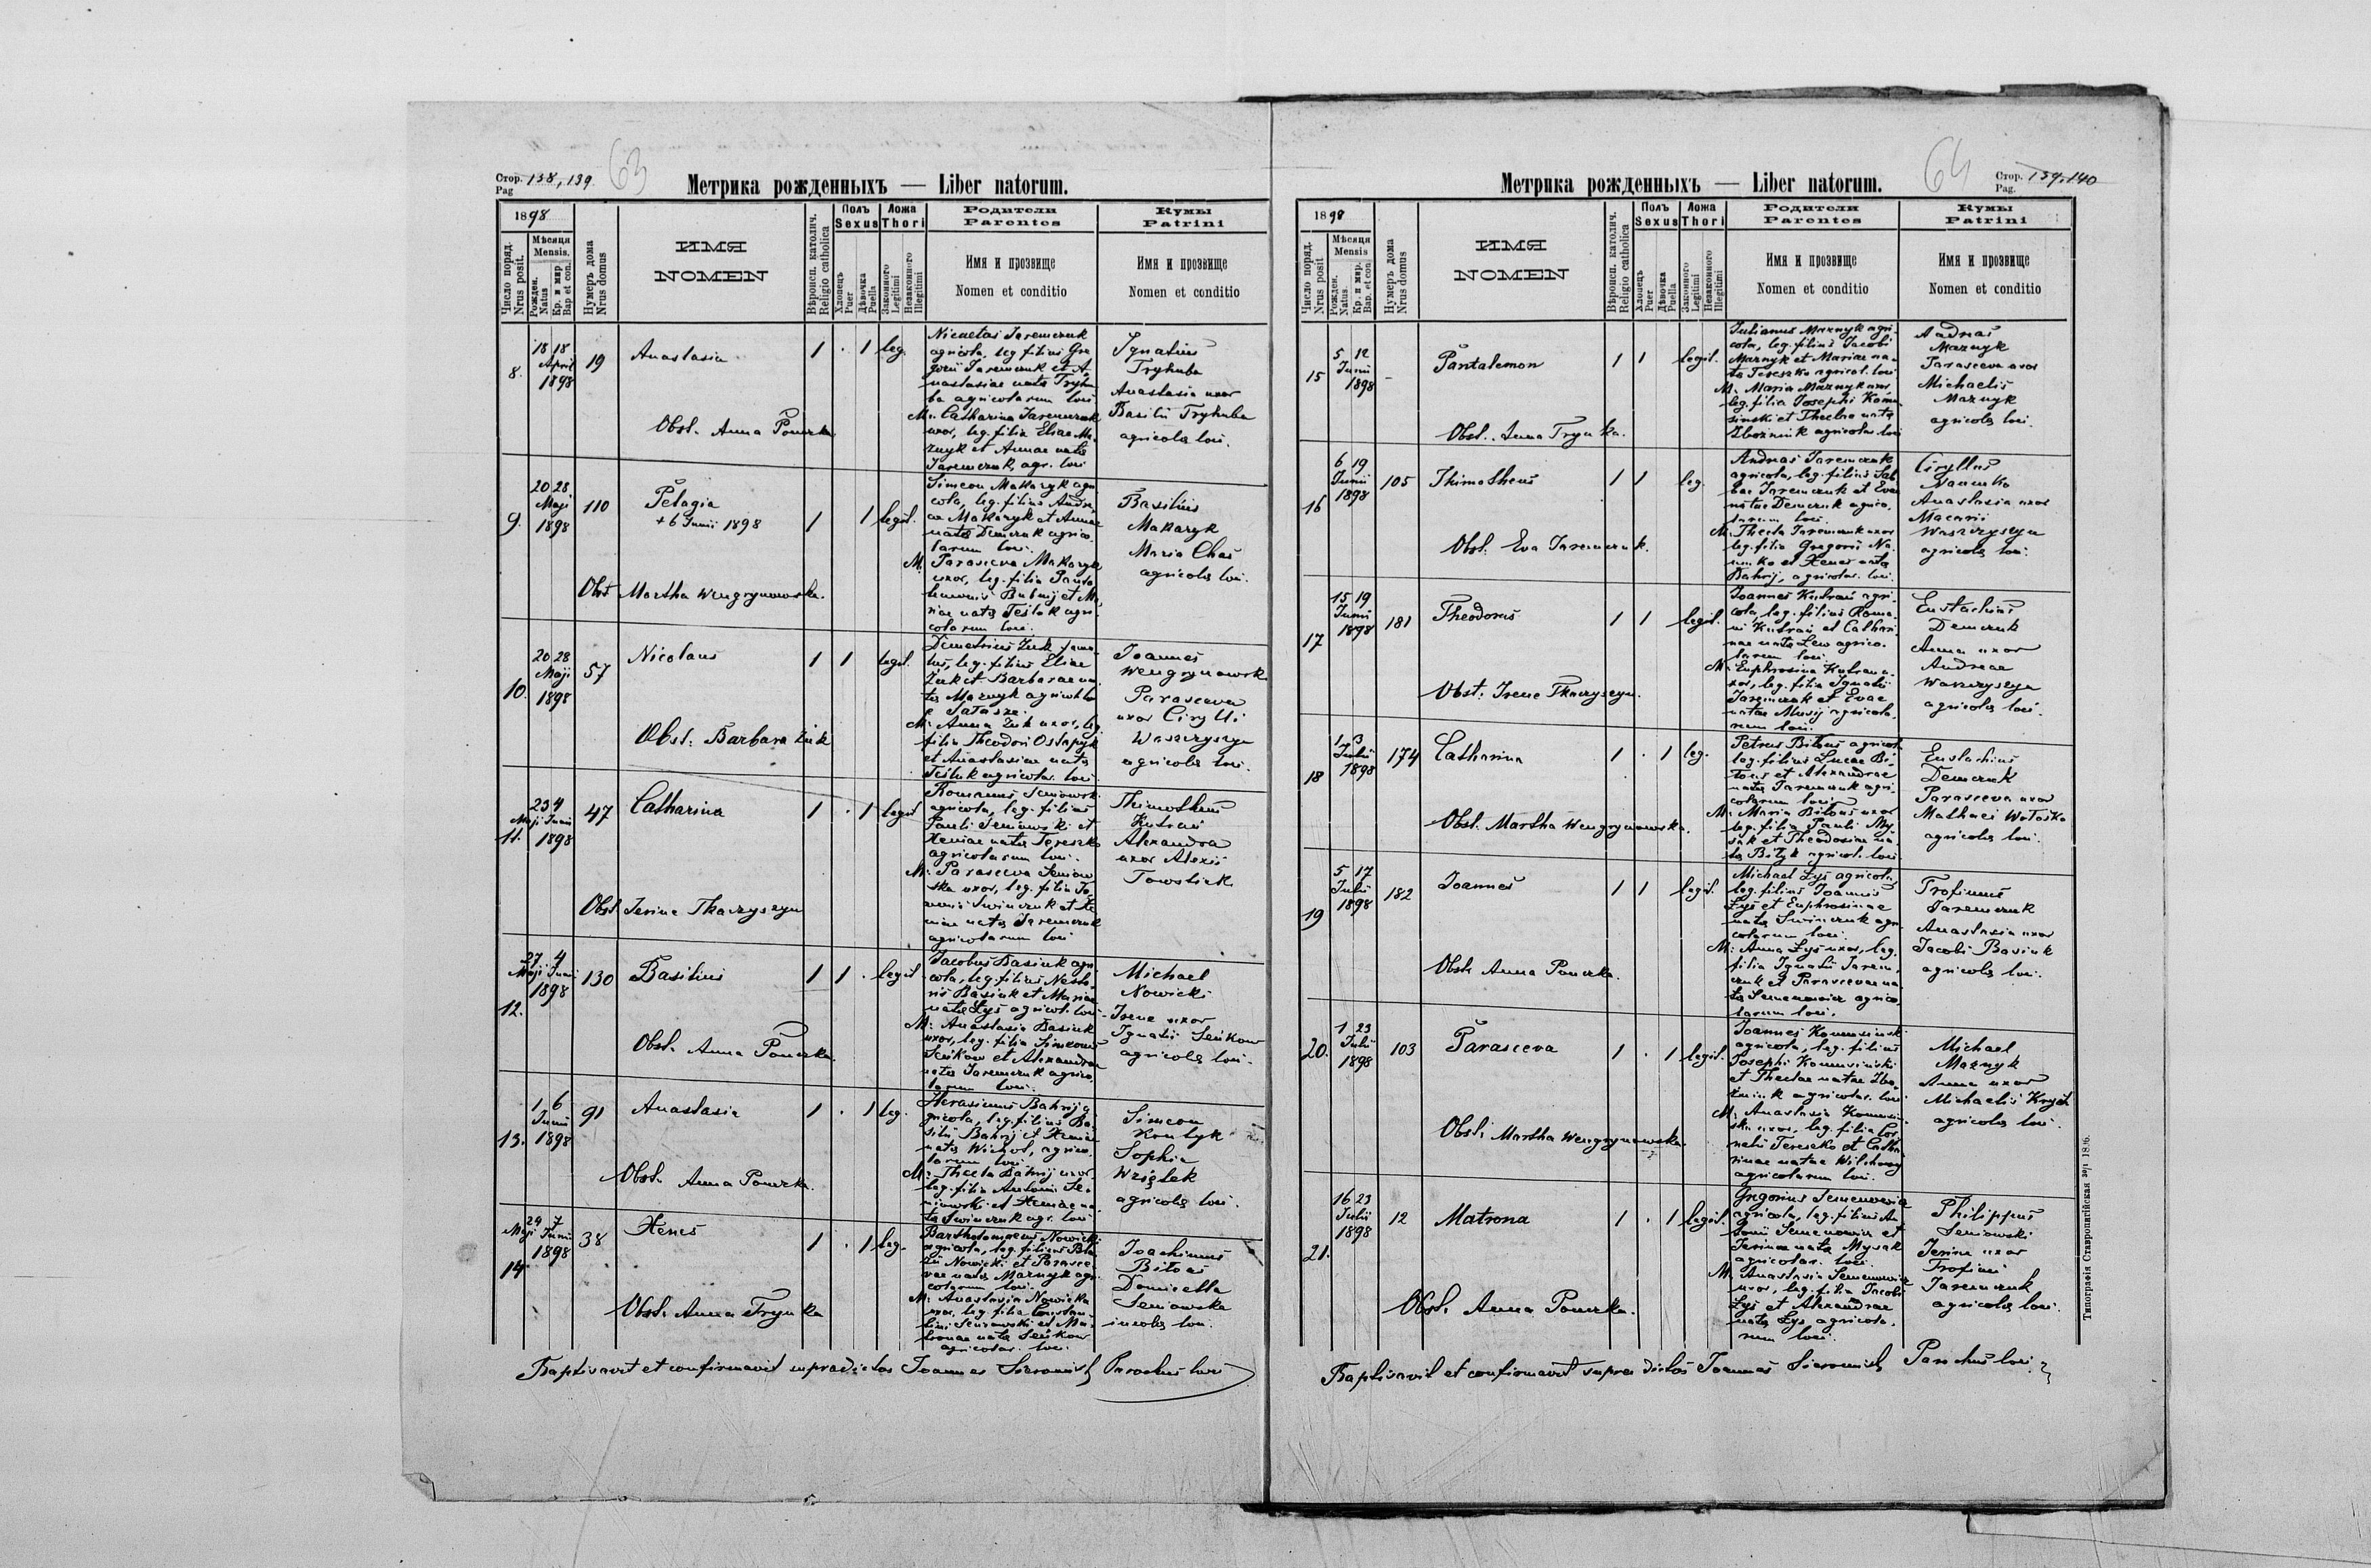 63
Стор. 138, 139
Pag
Метрика рожденныхъ — Liber natorum.
1898
Число поряд.
Nrus posit.
Мѣсяця
Mensis.
Рожден.
Natus
Кр. и мир
Bap et con.
Нумеръ дома
Nrus domus
ИМЯ
NOMEN
Вѣроисп. католич.
Religio catholica
Полъ
Sexus
Хлопецъ
Puer
Дѣвочка
Puella
Ложа
Thori
Законного
Legitimi
Незаконного
Illegitimi
Родители
Parentes
Имя и прозвище
Nomen et conditio
Кумы
Patrini
Имя и прозвище
Nomen et conditio
8.
18 18
April
1898
19
Anastasia
1 . 1 leg.
Obst. Anna Ponczka
Nicaetas Jaremczuk
agricola, leg filius Gre
gorii Jaremczuk et A
nastasiae nata Tryhu
ba agricolarum loci
M. Catharina Jaremczuk
uxor, leg. filia Eliae Ma
znyk et Annae nata
Jaremczuk, agr. loci
Ignatius
Tryhuba
Anastasia uxor
Basilii Tryhuba
agricolae loci.
9.
20 28
Maji
1898
110
Pelagia
+ 6 Junii 1898
1 1 legit.
Obst Martha Wengrynowska.
Simeon Makaryk agri
cola, leg. filius Andre
ae Makaryk et Annae
nata Demczuk agrico
larum loci.
M. Parasceva Makaryk
uxor, leg. filia Panta
leemonis Bubnij et Ma
riae nata Tesluk agri
colarum loci.
Basilius
Makaryk
Maria Chas
agricolae loci.
10.
20 28
Maji
1898
57
Nicolaus
1 1 legit.
Obst. Barbara Zuk
Demetrius Zuk famu
lus, leg. filius Eliae
Zuk et Barbarae na
ta Maznyk agricol.
M. Anna Zuk uxor, leg
filia Theodori Ostapyk
et Anastasiae nata
Tesluk agricolar. loci
Joannes
Wengrynowsk
Parasceva
uxor Cirylli
Waszczyszyn
agricolae loci.
11.
23 4
Maji Junii
1898
47
Catharina
1 . 1 legit
Obst Irina Tkaczyszyn
Romanus Seniowsk
agricola, leg. filius
Pauli Seniowski et
Xeniae nata Tereszko
agricolarum loci.
M. Parasceva Seniow
ska uxor, leg. filia Jo
annis Swinczuk et Xe
niae nata Jaremczuk
agricolarum loci
Thimotheus
Kutrań
Alexandra
uxor Alexii
Towstiuk
12.
27 4
Maji Junii
1898
130
Basilius
1 1 . legit
Obst. Anna Ponczka.
Jacobus Basiuk agri
cola, leg. filius Nesto
ris Basiuk et Mariae
nata Łyś agricol. loci
M. Anastasia Basiuk
uxor, leg. filia Simeonis
Seńkow et Alexandra
nata Jaremczuk agrico
larum loci.
Michael
Nowicki
Irene uxor
Ignatii Seńkow
agricolae loci.
13.
1 6
Junii
1898
91
Anastasia
1 . 1 leg.
Obst. Anna Ponczka.
Herasimus Bahrij a
gricola, leg. filius Ba
silii Bahrij et Xeniae
nata Wichot, agrico
larum loci
M. Thecla Bahrij uxor
leg. filia Antonii Se
niowski et Xeniae na
ta Swinczuk agr. loci
Simeon
Kontyk
Sophia
Wziątek
agricolae loci.
14
29 7
Maji Junii
1898
38
Xenes
1 . 1 leg.
Obst. Anna Trynka
Bartholomaeus Nowicki
agricola, leg. filius Bla
sii Nowicki et Parasce
vae nata Maznyk agri
colarum loci.
M. Anastasia Nowicka
uxor, leg. filia Constan
tini Seniowski et Ma
tronae nata Seńkow
agricolar. loci.
Joachimus
Bitous
Domicella
Seniowska
incolae loci.
Baptisavit et confirmavit supradictos Joannes Parochus loci
64
Стор. 139, 140
Pag.
Метрика рожденныхъ — Liber natorum.
1898
Число поряд.
Nrus posit
Мѣсяця
Mensis
Рожден.
Natus.
Кр. и мир.
Bap. et con.
Нумеръ дома
Nrus domus
ИМЯ
NOMEN
Вѣроисп. католич.
Religio catholica
Полъ
Sexus
Хлопецъ
Puer
Дѣвочка
Puella
Ложа
Thori
Законного
Legitimi
Незаконного
Illegitimi
Родители
Parentes
Имя и прозвище
Nomen et conditio
Кумы
Patrini
Имя и прозвище
Nomen et conditio
15
5 12
Junii
1898
–
Pantalemon
1 1 legit.
Obst. Anna Trynka.
Julianus Maznyk agri
cola, leg. filius Jacobi
Maznyk et Mariae na
ta Tereszko agricol. loci
M. Maria Maznyk uxor
leg. filia Josephi Komu
sinski et Theclae nata
Zbożnik agricolar. loci
Andreas
Maznyk
Parasceva uxor
Michaelis
Maznyk
agricolae loci.
16
6 19
Junii
1898
105
Thimotheus
1 1 leg.
Obst. Eva Jaremczuk.
Andreas Jaremczuk
agricola, leg. filius Sab
bae Jaremczuk et Evae
natae Demczuk agrico
larum loci.
M. Thecla Jaremczuk uxor
leg. filia Gregorii Na
umko et Xeniae nata
Bahrij, agricolar. loci.
Cyrillus
Naumko
Anastasia uxor
Macarii
Waszczyszyn
agricolae loci.
17
15 19
Junii
1898
181
Theodorus
1 1 legit.
Obst. Irene Tkaczyszyn.
Joannes Kutrań agri
cola, leg. filius Roma
ni Kutrań et Cathari
nae nata Lew agrico
larum loci.
M. Euphrosina Kutrań u
xor, leg. filia Ignatii
Jaremczuk et Evae
natae Musij agricola
rum loci.
Eustachius
Demczuk
Anna uxor
Andreae
Waszczyszyn
agricolae loci.
18
1 3
Julii
1898
174
Catharina
1 . 1 leg.
Obst. Martha Wengrynowska.
Petrus Bitous agricola
leg. filius Lucae Bi
tous et Alexandrae
nata Jaremczuk agri
colarum loci
M. Maria Bitous uxor
leg. filia Pauli My
sak et Theodosiae na
ta Bilyk agricol. loci
Eustachius
Demczuk
Parasceva uxor
Mathaei Wołoszko
agricolae loci.
19
5 17
Julii
1898
182
Joannes
1 1 legit.
Obst. Anna Ponczka.
Michael Łyś agricola,
leg. filius Joannis
Łyś et Euphrosinae
nata Swinczuk agri
colarum loci.
M. Anna Łyś uxor, leg.
filia Ignatii Jarem
czuk et Parascevae na
ta Semenowicz agrico
larum loci.
Trofimus
Jaremczuk
Anastasia uxor
Jacobi Basiuk
agricolae loci.
20.
1 23
Julii
1898
103
Parasceva
1 . 1 legit.
Obst. Martha Wengrynowska.
Joannes Komusinski
agricola, leg. filius
Josephi Komusinski
et Theclae natae Zbo
żnik agricolar. loci
M. Anastasia Komusin
ska uxor, leg. filia Cor
nelii Tereszko et Catha
rinae natae Wilchowy
agricolarum loci.
Michael
Maznyk
Anna uxor
Michaelis Krych
agricolae loci.
21.
16 23
Julii
1898
12
Matrona
1 . 1 legit.
Obst. Anna Ponczka.
Gregorius Semenowicz
agricola, leg. filius An
tonii Semenowicz et
Irinae nata Mysak
agricolar. loci.
M. Anastasia Semenowicz
uxor, leg. filia Jacobi
Łyś et Alexandrae
nata Łyś agricola
rum loci.
Philippus
Seniowski
Irina uxor
Trofimi
Jaremczuk
agricolae loci.
Baptisavit et confirmavit supra dictos Joannes Parochus loci.
Типографія Ставропигійская